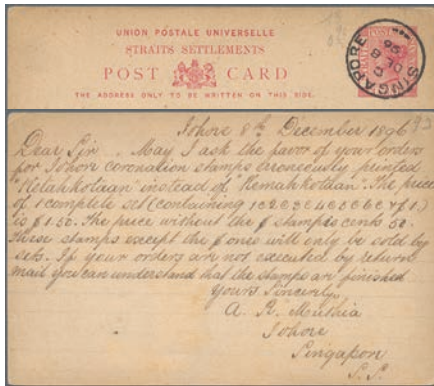 UNION POSTALE UNIVERSELLE
STRAITS SETTLEMENTS
POST CARD
THE ADDRESS ONLY TO BE WRITTEN ON THIS SIDE.
SINGAPORE
Johore 8th December 1896
Dear Sir.. May I ask the favor of your orders
for Johore coronation stamps erroneously printed
"Kelahkotaan" instead of Kemahkotaan. The price
of 1 complete set (containing 1c 2c 3c 4c 5c 6c & $1.)
is $1.50. The price without the $ stamp is cents 50.
These stamps except the $ ones will only be sold by
sets. If your orders are not executed by return
mail you can understand that the stamps are finished
Yours Sincerely,
A. R. Muthia
Johore
Singapore
S.S.